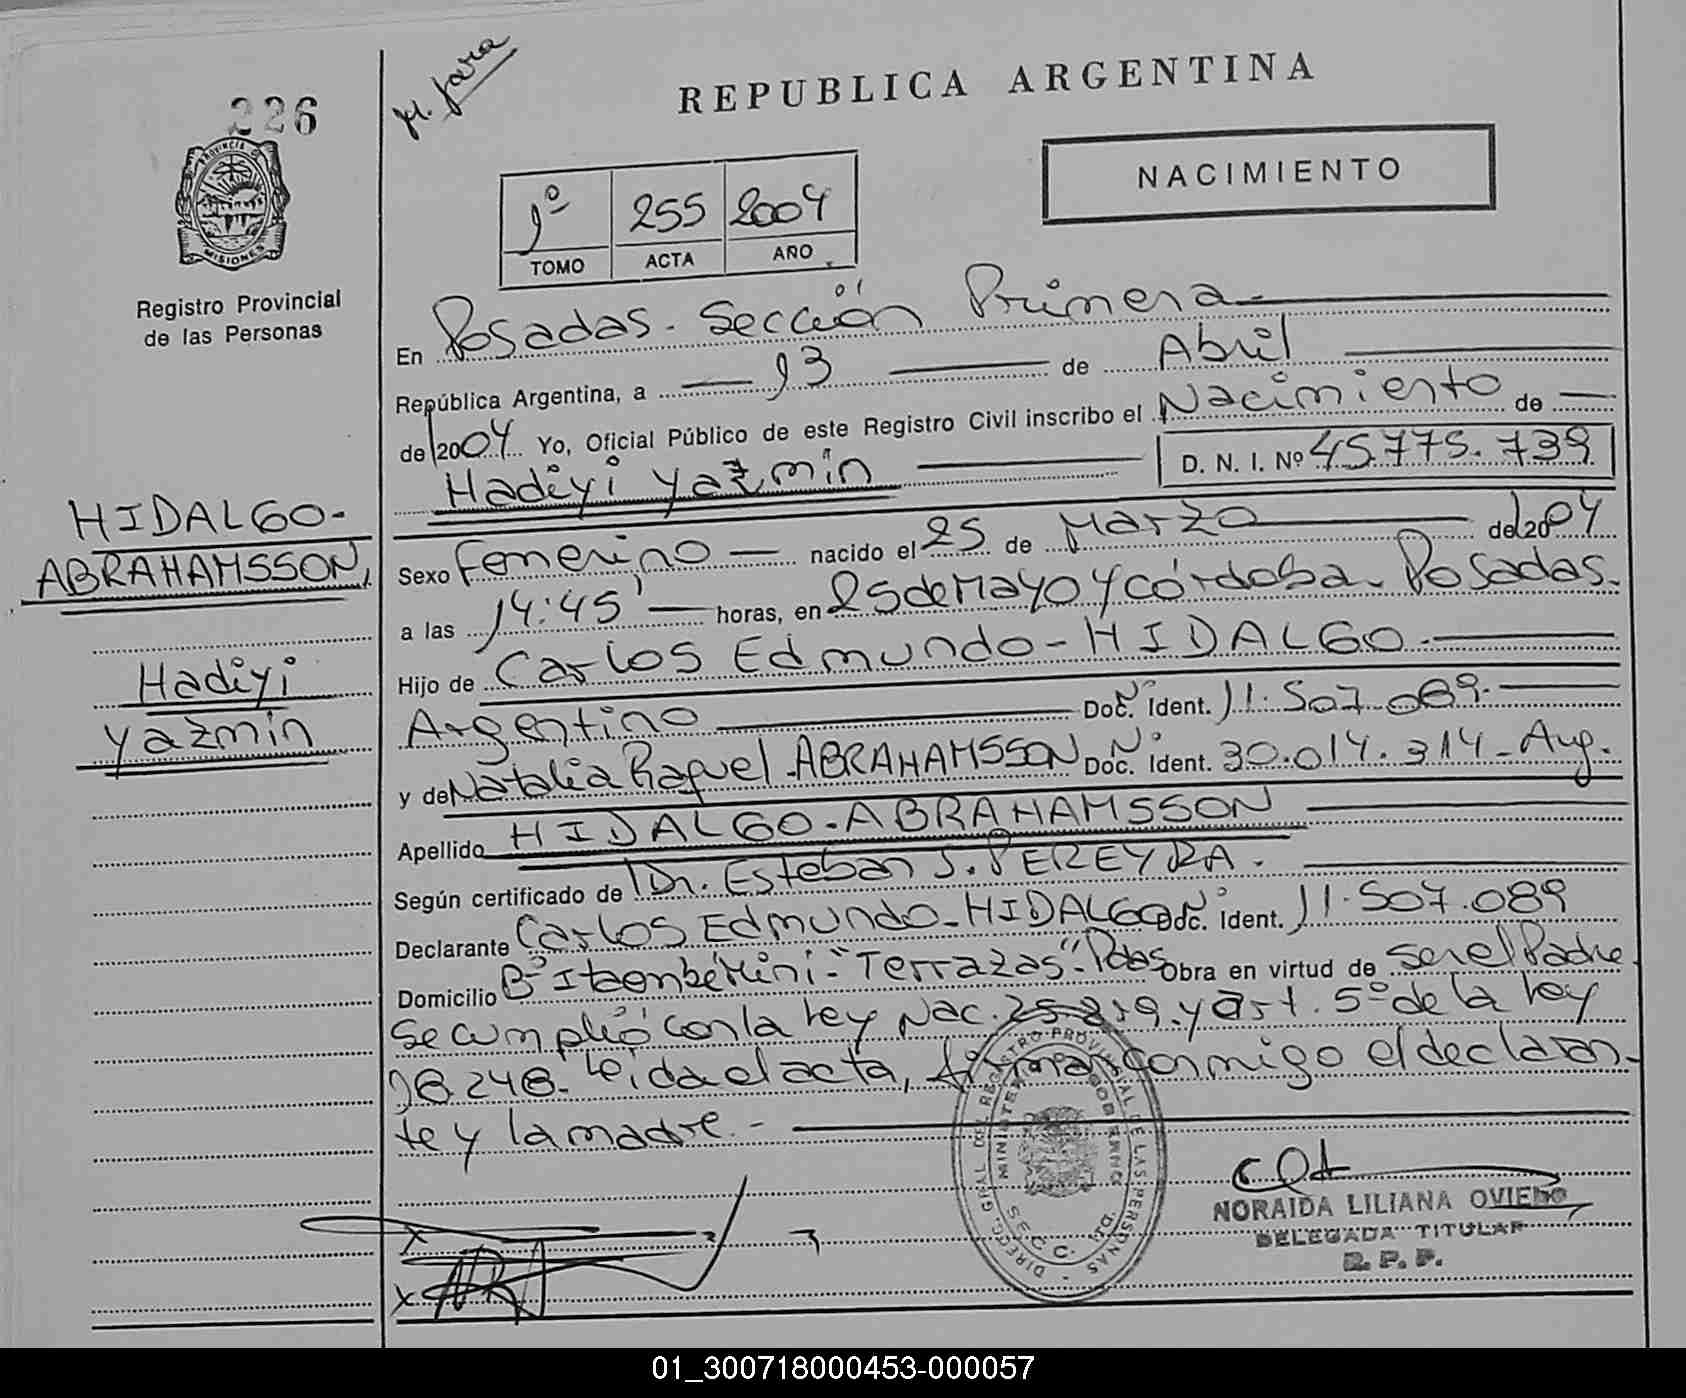 226
PROVINCIA DE
MISIONES
Registro Provincial
de las Personas
HIDALGO-
ABRAHAMSSON,
Hadiyi
Yazmin
REPUBLICA ARGENTINA
NACIMIENTO
1º 255 2004
TOMO ACTA AÑO
En Posadas - Sección Primera
República Argentina, a 13 de Abril
de 2004 Yo, Oficial Público de este Registro Civil inscribo el Nacimiento de
Hadiyi Yazmin D. N. I. Nº 45.775.739
Sexo Femenino nacido el 25 de Marzo de 2004
a las 14:45' horas, en 25 de Mayo y Córdoba - Posadas.
Hijo de Carlos Edmundo - HIDALGO -
Argentino Nº Doc. Ident. 11.507.089.
y de Natalia Raquel - ABRAHAMSSON Nº Doc. Ident. 30.014.314 - Arg.
Apellido HIDALGO - ABRAHAMSSON
Según certificado de Dr. Esteban J. PEREYRA.
Declarante Carlos Edmundo - HIDALGO Nº Doc. Ident. 11.507.089
Domicilio Bº Itaembé Miní - "Terrazas" - Pdas Obra en virtud de ser el Padre
Se cumplió con la Ley Nac. 25.819 y art. 5º de la Ley
18.248. Leída el acta, firman conmigo el declaran-
te y la madre. -
DIRECC. GRAL. DEL REGISTRO PROVINCIAL DE LAS PERSONAS
NORAIDA LILIANA OVIEDO
DELEGADA TITULAR
R. P. P.
01_300718000453-000057